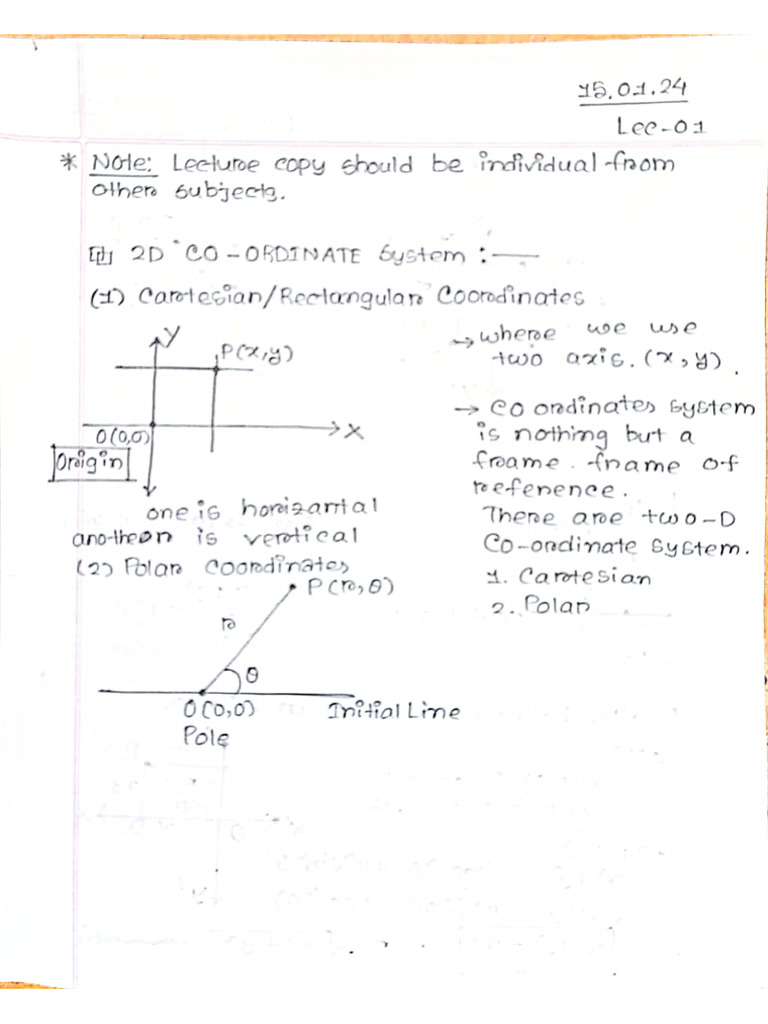 15.01.24
Lec-01
* Note: Lecture copy should be individual from
other subjects.
2D CO-ORDINATE System :—
(1) Cartesian/Rectangular Coordinates
Y
P(x,y)
X
O(0,0)
Origin
one is horizantal
another is vertical
→ where we use
two axis. (x, y).
→ co ordinates system
is nothing but a
frame. frame of
reference.
There are two-D
Co-ordinate system.
1. Cartesian
2. Polar
(2) Polar Coordinates
P(r, θ)
r
θ
O(0,0)
Initial Line
Pole